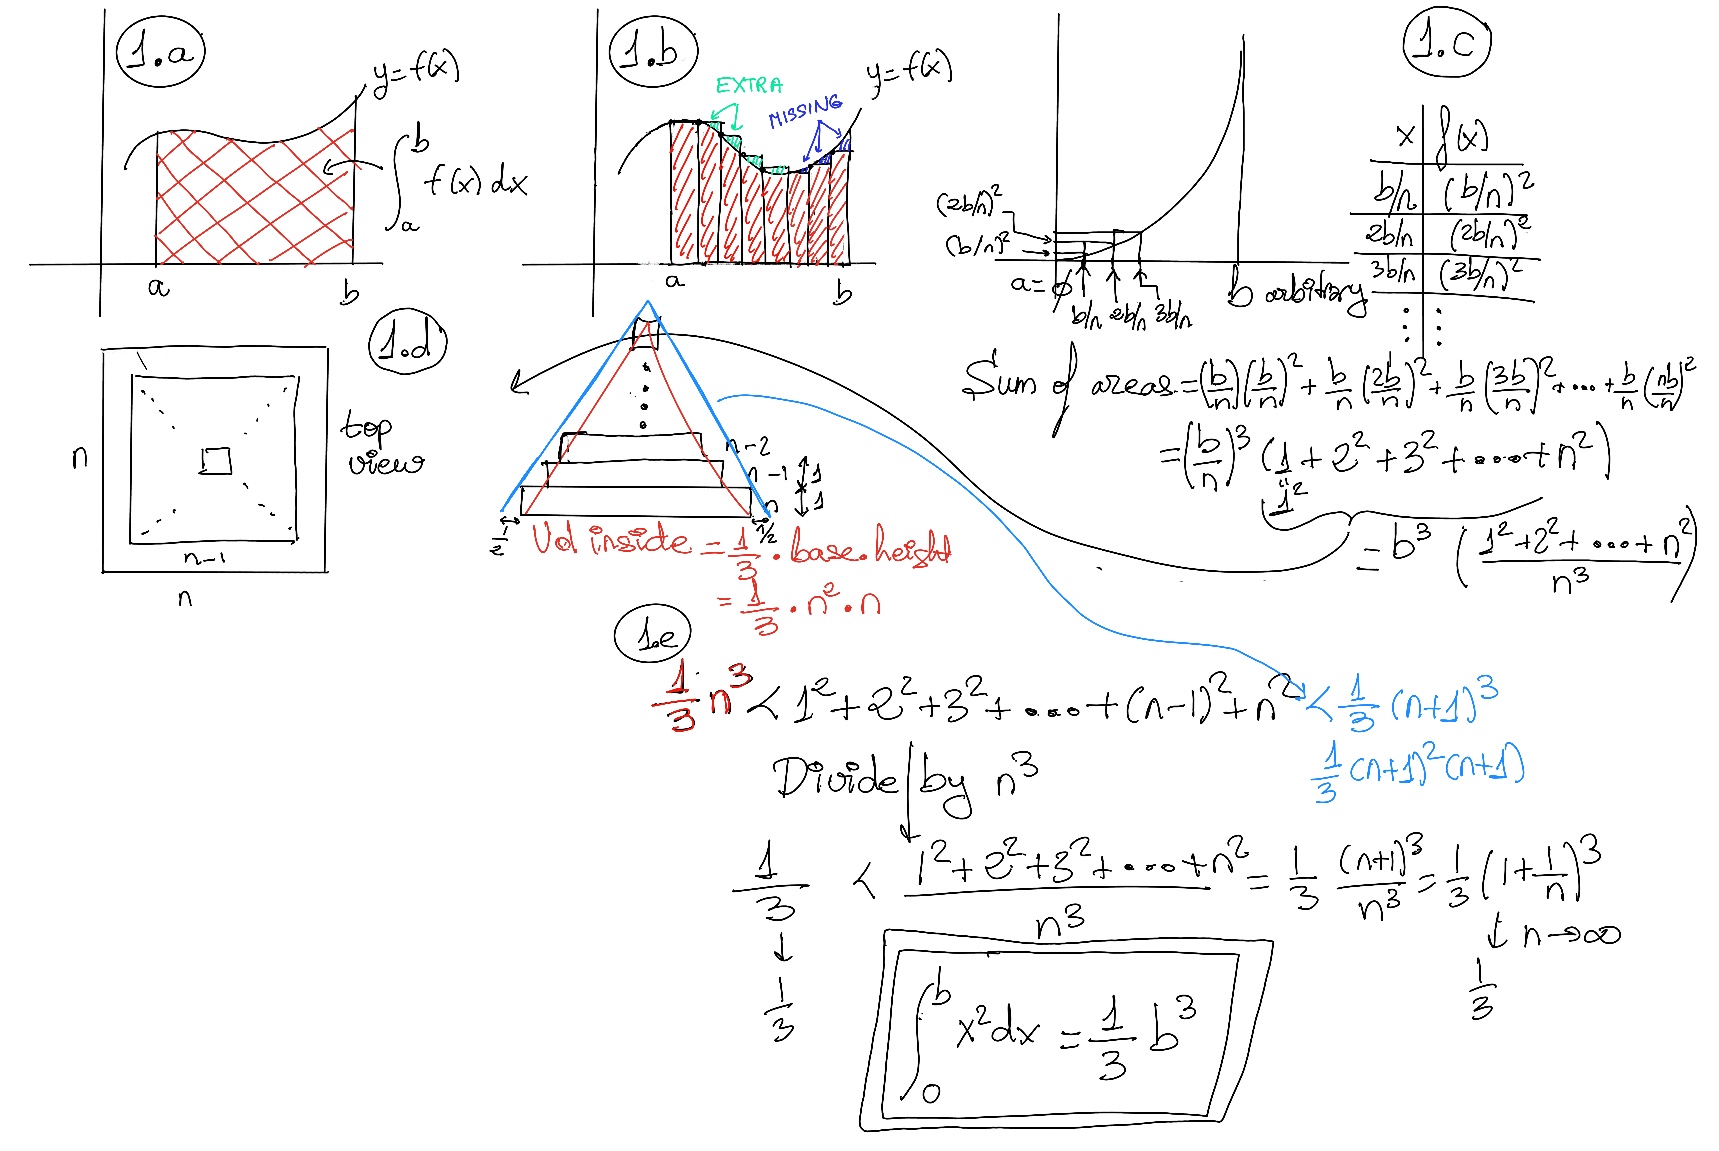 1.a
y=f(x)
∫_a^b f(x) dx
a b
1.b
EXTRA
MISSING
y=f(x)
a b
1.c
(2b/n)²
(b/n)²
a=0 b arbitrary
b/n 2b/n 3b/n
x f(x)
b/n (b/n)²
2b/n (2b/n)²
3b/n (3b/n)²
⋮ ⋮
Sum of areas = (b/n)(b/n)² + b/n (2b/n)² + b/n (3b/n)² + ... + b/n (nb/n)²
= (b/n)³ (1 + 2² + 3² + .... + n²)
1²
= b³ ( (1² + 2² + .... + n²) / n³ )
1.d
n
top
view
n-1
n
n-2
n-1 1
n 1
1/2 1/2
Vol inside = 1/3 · base · height
= 1/3 · n² · n
1.e
1/3 n³ < 1² + 2² + 3² + .... + (n-1)² + n² < 1/3 (n+1)³
1/3 (n+1)² (n+1)
Divide by n³
1/3 < (1² + 2² + 3² + .... + n²) / n³ = 1/3 (n+1)³/n³ = 1/3 (1 + 1/n)³
↓ ↓ n→∞
1/3 1/3
∫_0^b x² dx = 1/3 b³